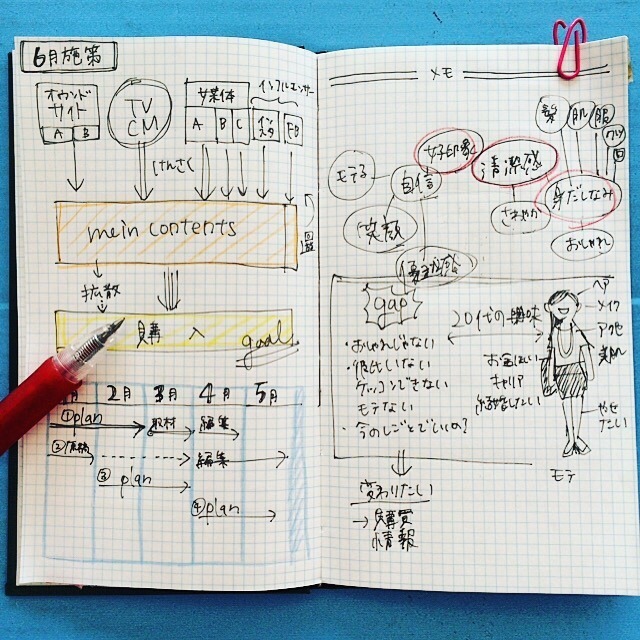 6月施策
オウンド
サイト
A B
TV
CM
媒体
A B C
インフルエンサー
FB
けんさく
main contents
拡散
購入
goal
月 2月 3月 4月 5月
①plan 取材 編集
② 編集
③ plan
④plan
メモ
髪 肌 服
モテる
自信
清潔感
身だしなみ
さわやか
おしゃれ
笑顔
優越感
gap
・おしゃれじゃない
・彼氏いない
ケッコンできない
モテない
・今のしごとでいいの?
20代の興味
お金ほしい
キャリア
結婚したい
ヘア
メイク
アクセ
美肌
やせ
たい
モテ
変わりたい
→購買
情報